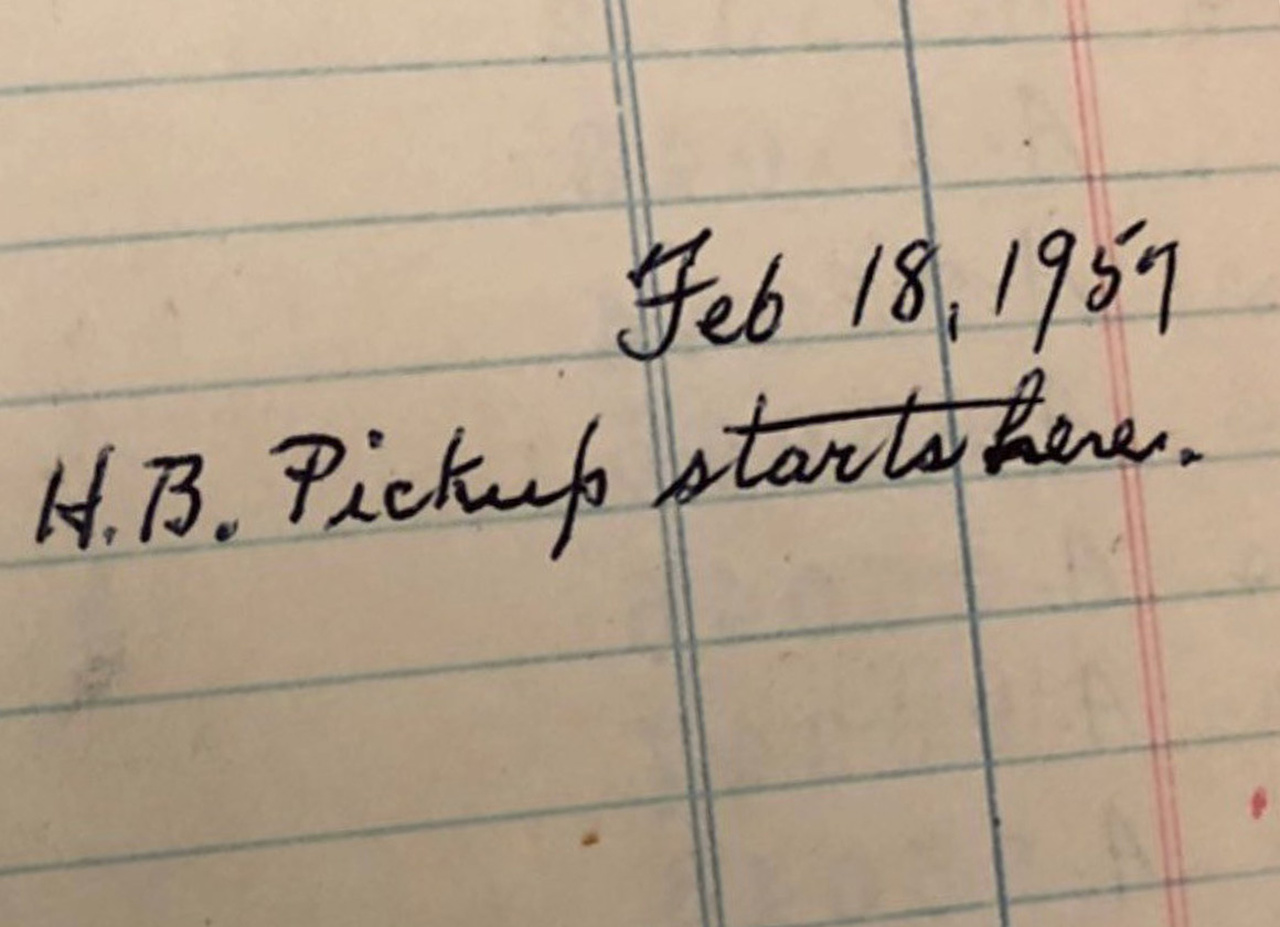 Feb 18, 1957
H.B. Pickup starts here.